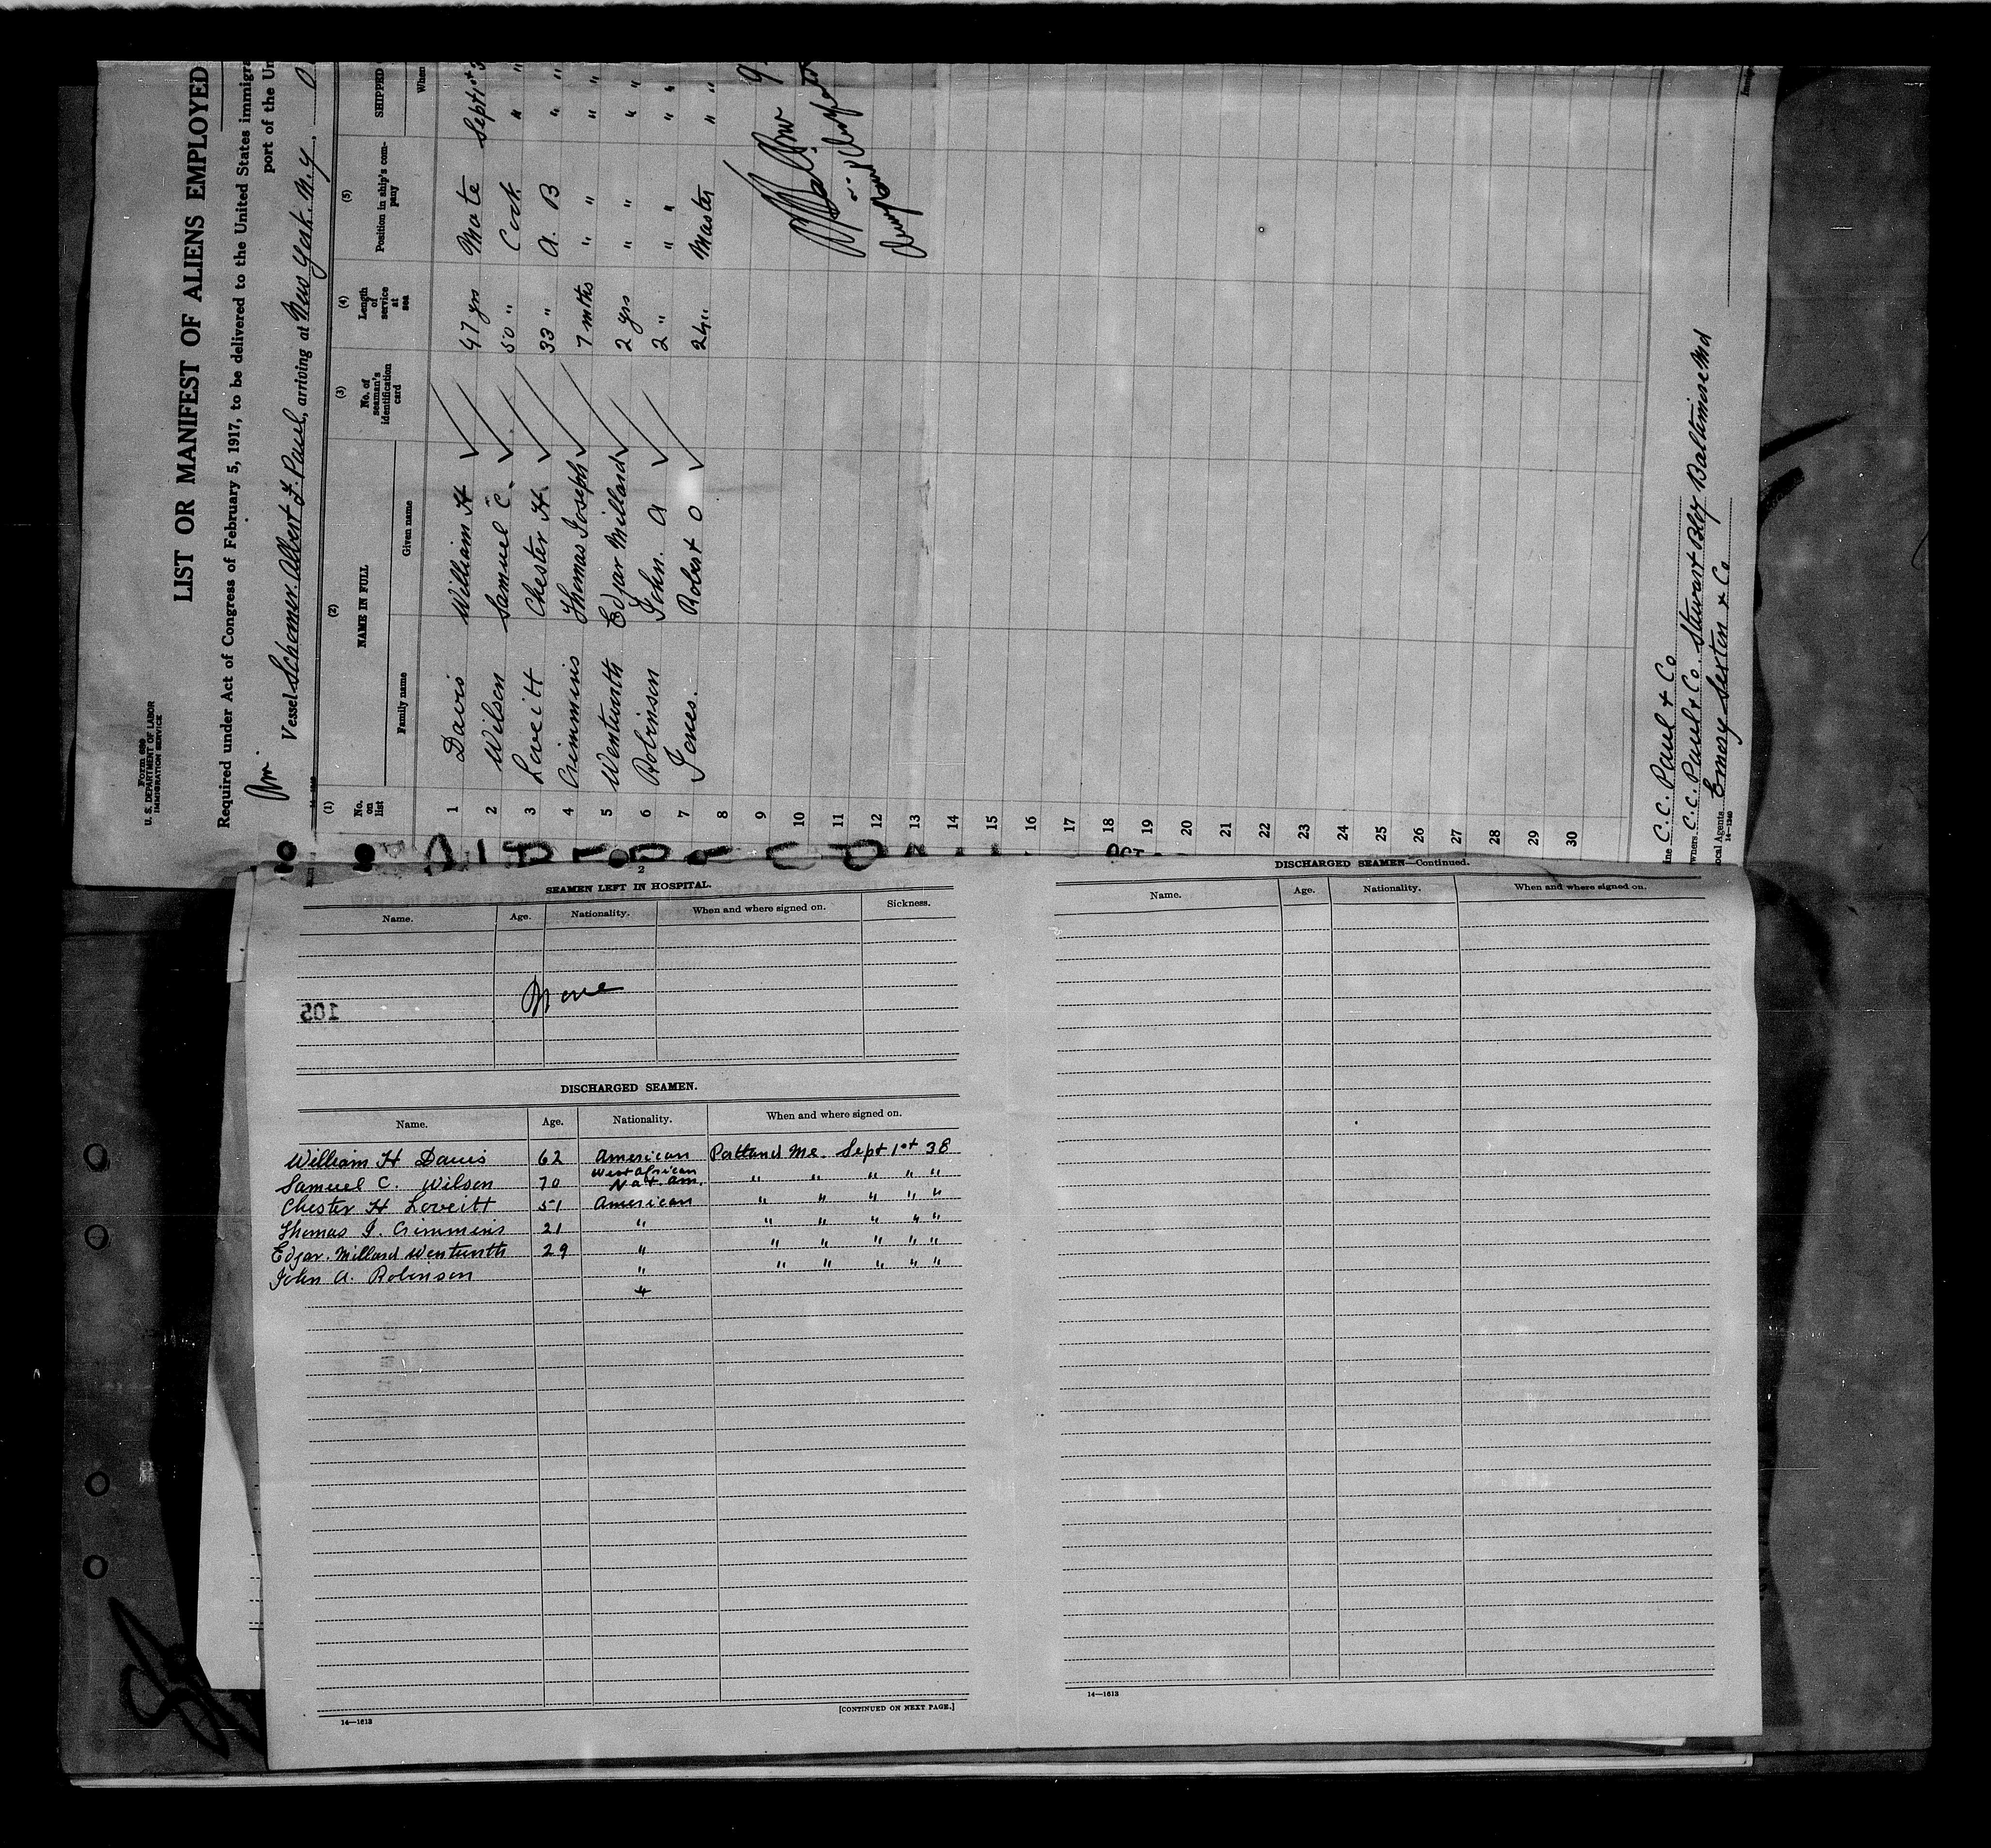 Form 689
U. S. DEPARTMENT OF LABOR
IMMIGRATION SERVICE
LIST OR MANIFEST OF ALIENS EMPLOYED
Required under Act of Congress of February 5, 1917, to be delivered to the United States immigra
port of the Un
Vessel Schooner. Albert F. Paul, arriving at New York. N.Y.
(1) (2) (3) (4) (5)
No. on list NAME IN FULL No. of seaman's identification card Length of service at sea Position in ship's company SHIPPED
Family name Given name When
1 Davis William H 47 yrs Mate Sept 1st 3
2 Wilson Samuel C. 50 " Cook " "
3 Loveitt Chester H. 33 " A. B " "
4 Crimmins Thomas Joseph 7 mths " " " "
5 Wentworth Edgar Millard 2 yrs " " " "
6 Robinson John. A 2 " " " " "
7 Jones. Robert O 24 " Master " "
8
9
10
11
12
13
14
15
16
17
18
19
20
21
22
23
24
25
26
27
28
29
30
ine C. C. Paul & Co
wners C. C. Paul & Co. Stewart Bldg Baltimore Md
ocal Agents Emory Sexton & Co
14—1240
2
SEAMEN LEFT IN HOSPITAL.
Name. Age. Nationality. When and where signed on. Sickness.
None
105
DISCHARGED SEAMEN.
Name. Age. Nationality. When and where signed on.
William H Davis 62 American Portland Me. Sept 1st 38
West African
Samuel C. Wilson 70 Nat. Am. " " " " "
Chester H Loveitt 51 American " " " " "
Thomas J. Crimmens 21 " " " " " "
Edgar. Millard Wentworth 29 " " " " " "
John A. Robinson " " " " " "
"
14—1613
[CONTINUED ON NEXT PAGE.]
DISCHARGED SEAMEN—Continued.
Name. Age. Nationality. When and where signed on.
14—1613